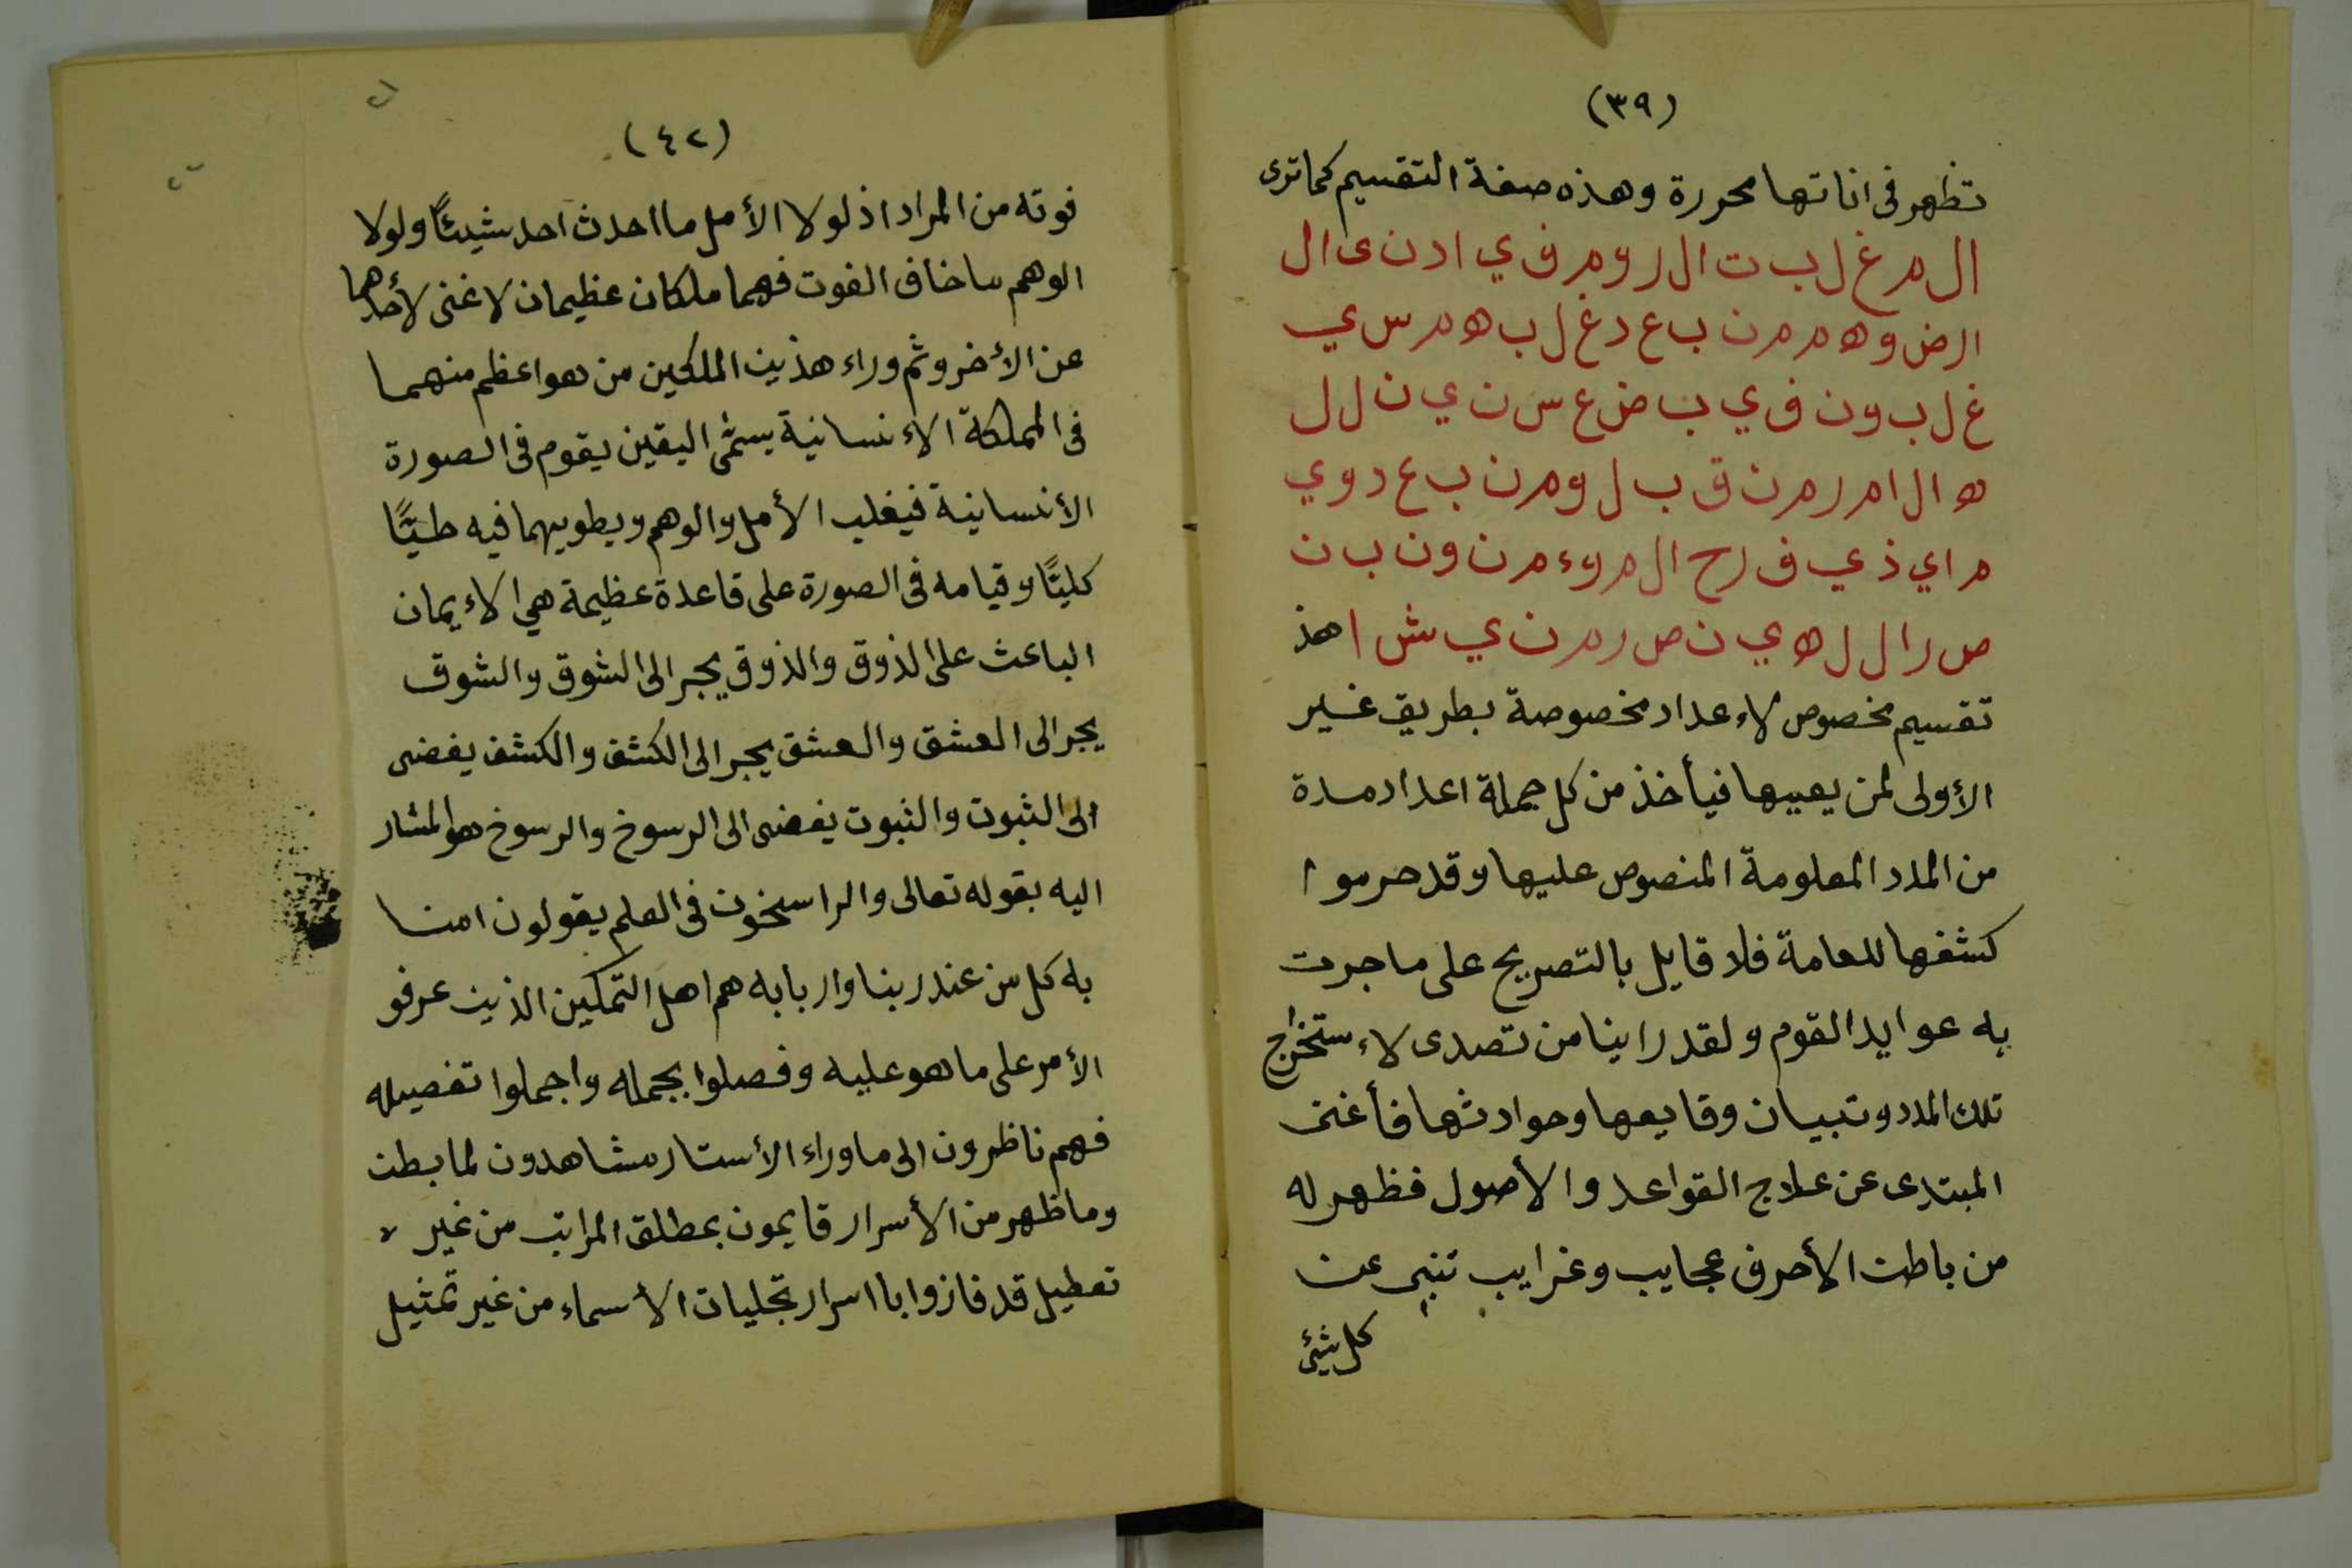 (٣٩)
تظهر فى اناتها محررة وهذه صفة التقسيم كماترى
ال م غ ل ب ت ال ر و م ف ي ا د ن ى ال
ا ر ض و ه م م ن ب ع د غ ل ب ه م س ي
غ ل ب و ن ف ي ب ض ع س ن ي ن ل ل
ه ا ل ا م ر م ن ق ب ل و م ن ب ع د و ي
م ا ي ذ ي ف ر ح ا ل م و ء م ن و ن ب ن
ص ر ا ل ل ه ي ن ص ر م ن ي ش ا هذ
تقسيم مخصوص لاءعداد مخصوصة بطريق غير
الأولى لمن يعيها فيأخذ من كل جملة اعداد مدة
من المدد المعلومة المنصوص عليها وقد حرموا
كشفها للعامة فلا قايل بالتصريح على ما جرت
به عوايد القوم ولقد راينا من تصدى لاءستخراج
تلك المدد وتبيان وقايعها وحوادثها فأغنى
المبتدى عن علاج القواعد والأصول فظهر له
من باطن الأحرف عجايب وغرايب تنبى عن
كل شيئ
(٤٢)
فوته من المراد اذ لولا الأمل ما احدث احد شيئًا ولولا
الوهم ما خاف الفوت فهما ملكان عظيمان لا غنى لأحدهما
عن الأخر وثم وراء هذين الملكين من هو اعظم منهما
فى المملكة الاءنسانية يسمى اليقين يقوم فى الصورة
الأنسانية فيغلب الأمل والوهم ويطويهما فيه طيًّا
كليًّا وقيامه فى الصورة على قاعدة عظيمة هي الاءيمان
الباعث على الذوق والذوق يجر الى الشوق والشوق
يجر الى العشق والعشق يجر الى الكشف والكشف يفضى
الى الثبوت والثبوت يفضى الى الرسوخ والرسوخ هو المشار
اليه بقوله تعالى والراسخون فى العلم يقولون امنا
به كل من عند ربنا واربابه هم اهل التمكين الذين عرفو
الأمر على ما هو عليه وفصلوا بجمله واجملوا تفصيله
فهم ناظرون الى ما وراء الأستار مشاهدون لما بطن
وما ظهر من الأسرار قايمون بمطلق المراتب من غير
تعطيل قد فازوا باسرار تجليات الأسماء من غير تمثيل